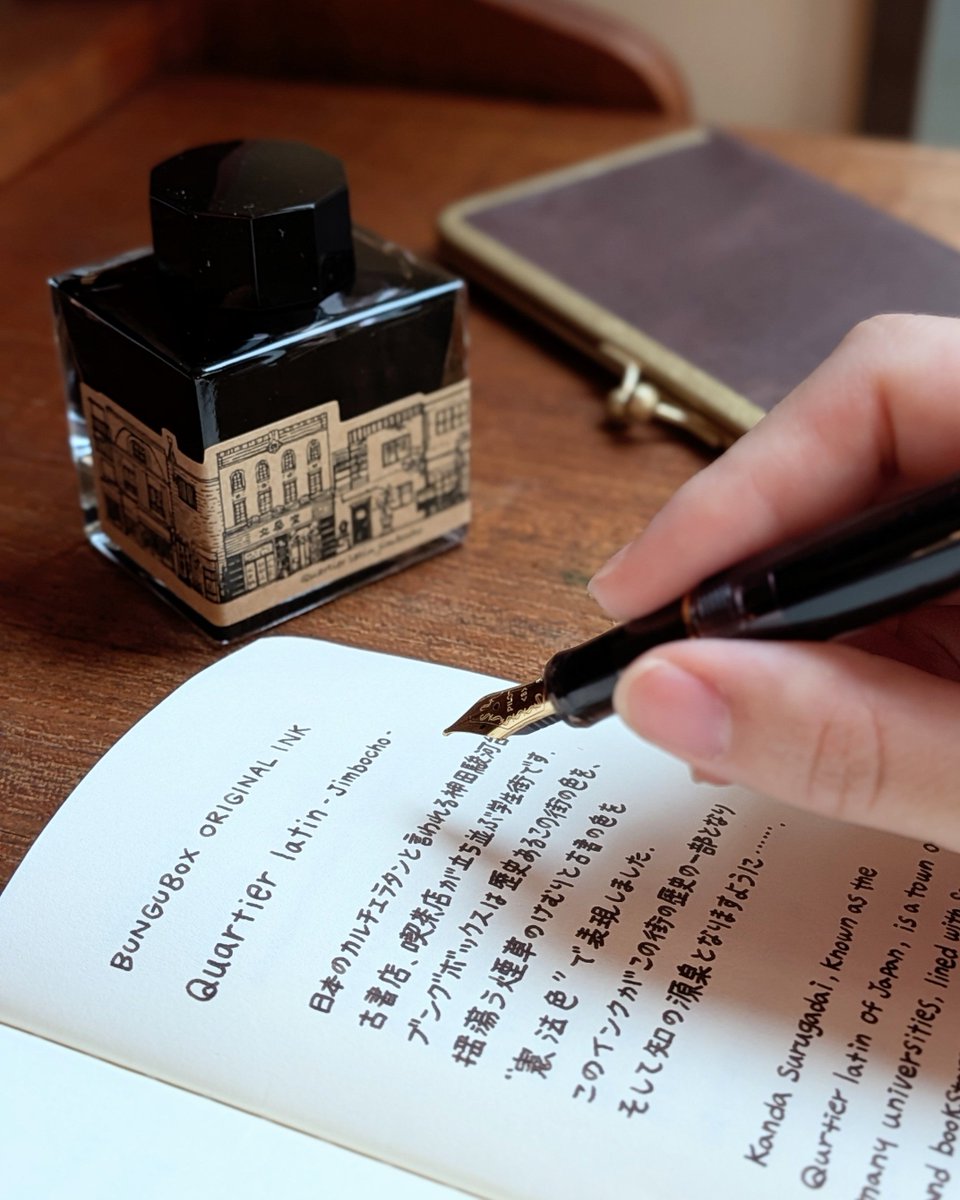 Quartier latin Jimbocho
PILOT
BUNGUBOX ORIGINAL INK
Quartier latin - Jimbocho-
日本のカルチェラタンと言われる神田駿河台
古書店、喫茶店が立ち並ぶ学生街です。
ブングボックスは歴史あるこの街の色を、
揺蕩う煙草のけむりと古書の色を
“憲法色”で表現しました。
このインクがこの街の歴史の一部となり
そして知の源泉となりますように……。
Kanda Surugadai, known as the
Qurtier latin of Japan, is a town o
many universities, lined with
and bookst